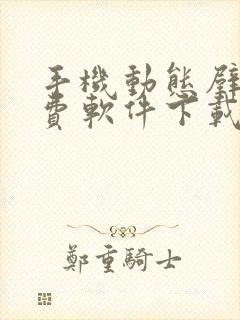 手機動態壁
費軟件下載
鄭重騎士